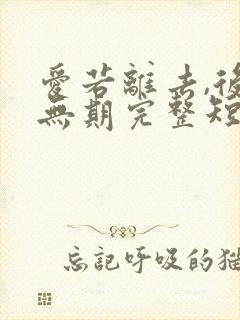 愛若離去,後
無期完整短
忘記呼吸的貓